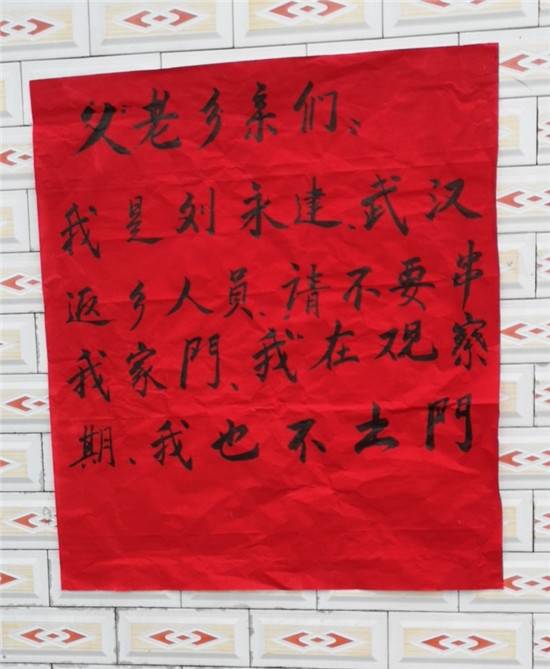 父老乡亲们：
我是刘永建、武汉
返乡人員、请不要串
我家門、我在观察
期、我也不土門